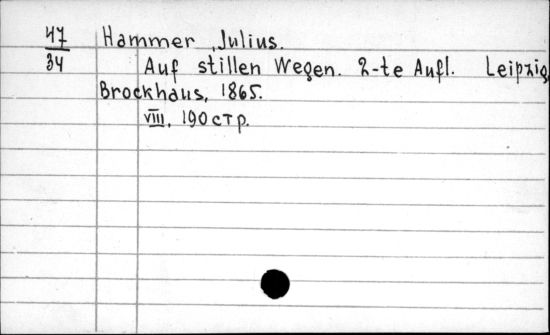 47
34
Hammer, Julius.
Auf stillen Wegen. 2-te Aufl. Leipzig,
Brockhaus, 1865.
VIII, 190 стр.